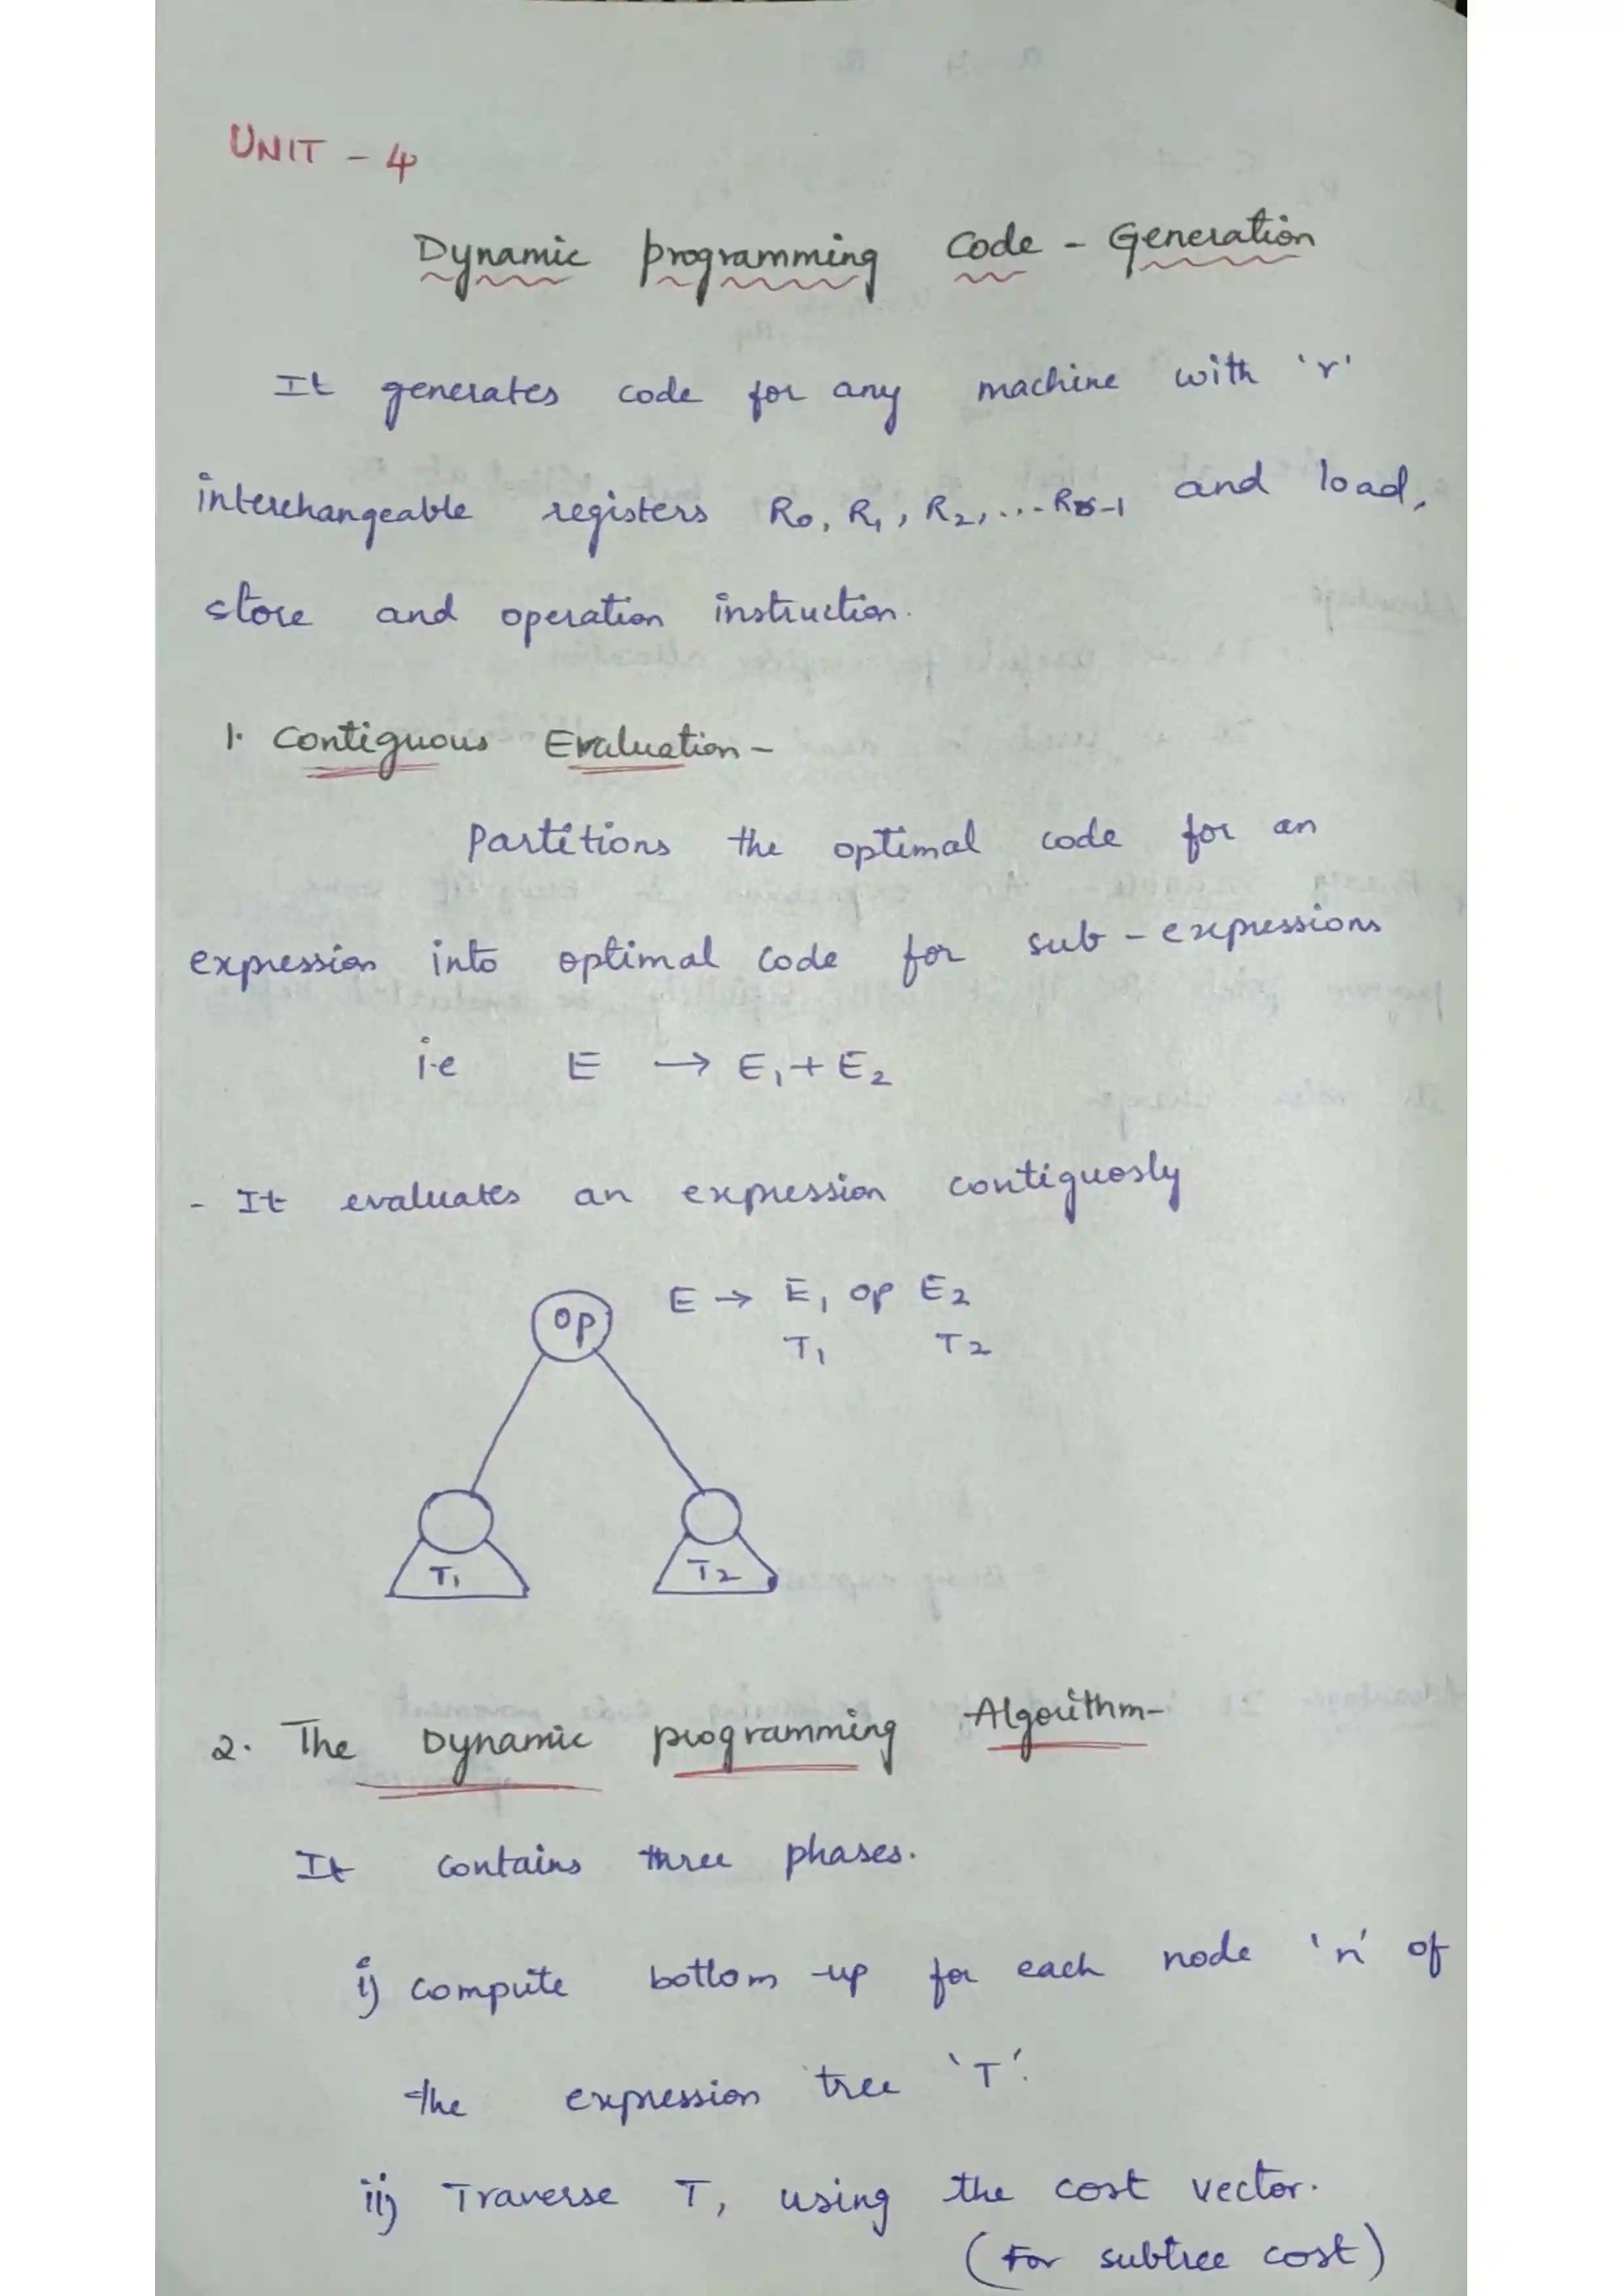 UNIT - 4
Dynamic programming Code - Generation
It generates code for any machine with 'r'
interchangeable registers R0, R1, R2, ... Rr-1 and load,
store and operation instruction.
1. Contiguous Evaluation -
Partitions the optimal code for an
expression into optimal code for sub - expressions
i.e E → E1 + E2
- It evaluates an expression contiguosly
op E → E1 op E2
T1 T2
T1 T2
2. The Dynamic programming Algorithm-
It contains three phases.
i) compute bottom -up for each node 'n' of
the expression tree 'T'.
ii) Traverse T, using the cost vector.
(For subtree cost)